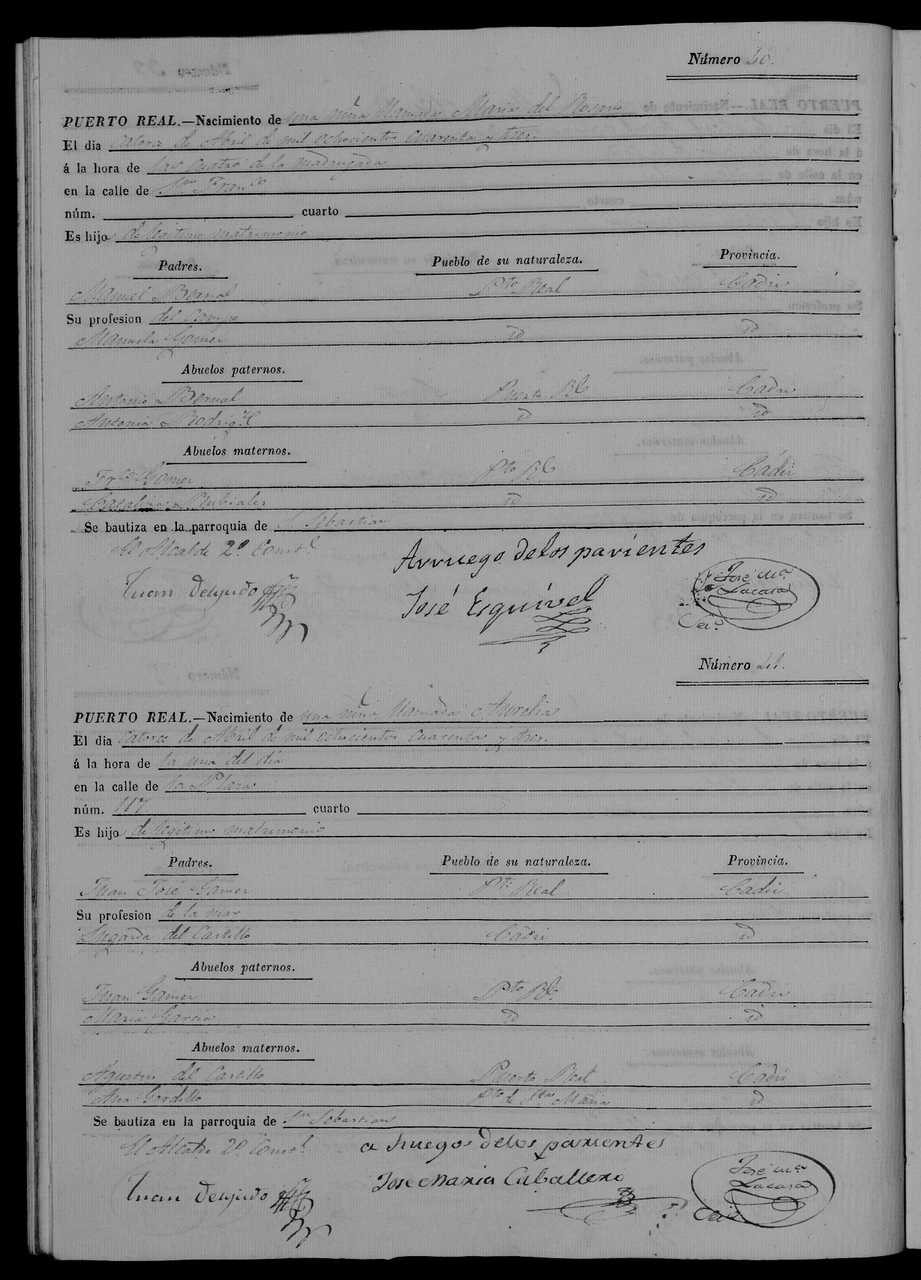 Número 40.
PUERTO REAL.—Nacimiento de una niña llamada Maria del Rosario
El dia catorce de Abril de mil ochocientos cuarenta y tres.
á la hora de las cuatro de la madrugada
en la calle de Sn Franco
núm. cuarto
Es hijo de legitimo matrimonio
Padres. Pueblo de su naturaleza. Provincia.
Manuel Bernal Pto Real Cadiz
Su profesion del Campo
Manuela Gomez id id
Abuelos paternos.
Antonio Bernal Puerto Rl Cadiz
Antonia Rodrigz id id
Abuelos maternos.
Gomez Pto Rl Cadiz
Catalina Rubiales id id
Se bautiza en la parroquia de Sn Sebastian
El Alcalde 2º Constl
Arruego de los parientes
Juan Delgado
José Esquivel
José Ma.
Lacasa
Número 41.
PUERTO REAL.—Nacimiento de una niña llamada Aurelia
El dia catorce de Abril de mil ochocientos cuarenta y tres.
á la hora de la una del dia
en la calle de la Plaza
núm. 117 cuarto
Es hijo de legitimo matrimonio
Padres. Pueblo de su naturaleza. Provincia.
Juan José Gamez Pto Real Cadiz
Su profesion de la mar
del Castillo Cadiz id
Abuelos paternos.
Juan Gamez Pto Rl Cadiz
Maria Garcia id id
Abuelos maternos.
Agustin del Castillo Puerto Real Cadiz
Ana Gordillo Pto de Sta Maria id
Se bautiza en la parroquia de Sn Sebastian
El Alcalde 2º Constl
a ruegos de los parientes
Juan Delgado
Jose Maria Caballero
José Ma.
Lacasa